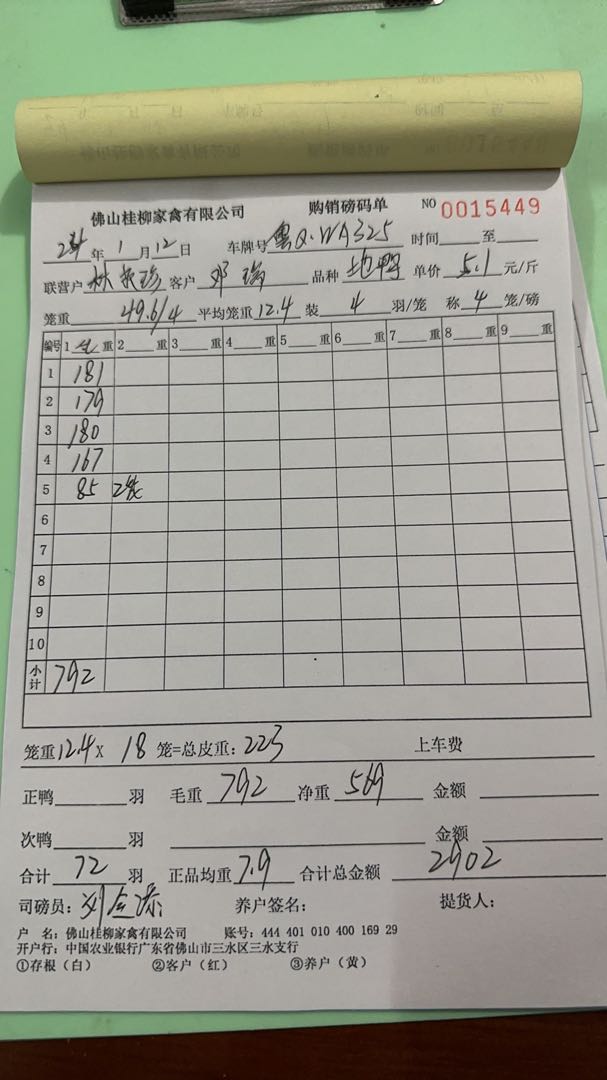 佛山桂柳家禽有限公司 购销磅码单 NO 0015449
年 1 月 12 日 车牌号 粤Q·WA325 时间 至
联营户 林 客户 邓瑞 品种 地鸭 单价 5.1 元/斤
笼重 49.6/4 平均笼重 12.4 装 4 羽/笼 称 4 笼/磅
编号 1 毛 重 2 重 3 重 4 重 5 重 6 重 7 重 8 重 9 重
1 181
2 179
3 180
4 167
5 85 2笼
6
7
8
9
10
小计 792
笼重 12.4 × 18 笼=总皮重: 223 上车费
正鸭 羽 毛重 792 净重 569 金额
次鸭 羽 金额
合计 72 羽 正品均重 7.9 合计总金额 2902
司磅员: 刘 养户签名: 提货人:
户 名: 佛山桂柳家禽有限公司 账号: 444 401 010 400 169 29
开户行: 中国农业银行广东省佛山市三水区三水支行
①存根（白） ②客户（红） ③养户（黄）